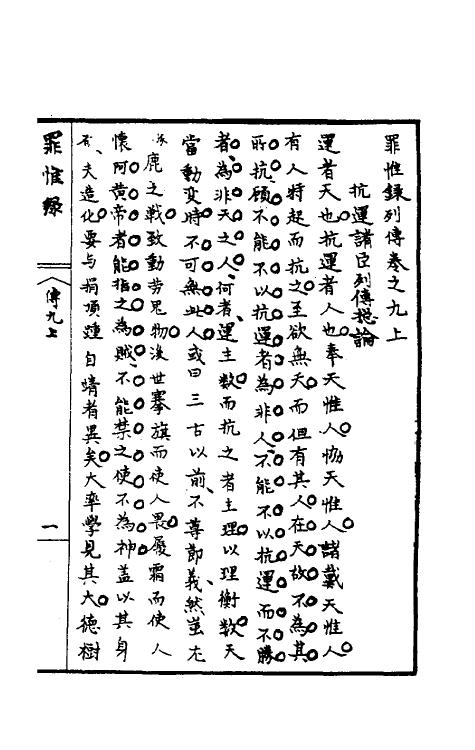 罪惟錄列傳卷之九上
抗運諸臣列傳總論
運者天也抗運者人也奉天惟人協天惟人諸戴天惟人
有人特起而抗之至欲無天而但有其人在天故不為其
所抗顧不能不以抗運者為非人不能不以抗運而不勝
者為非天之人何者運主數而抗之者主理以理衡數天
當動變時不可無此人或曰三古以前不尊節義然蚩尤
涿鹿之戰致動勞鬼物後世搴旗而使人畏履霜而使人
懷阿黃帝者能指之為賊不能禁之使不為神蓋以其身
夫造化要與捐頂踵自靖者異矣大率學見其大德樹
罪惟錄
傳九上
一